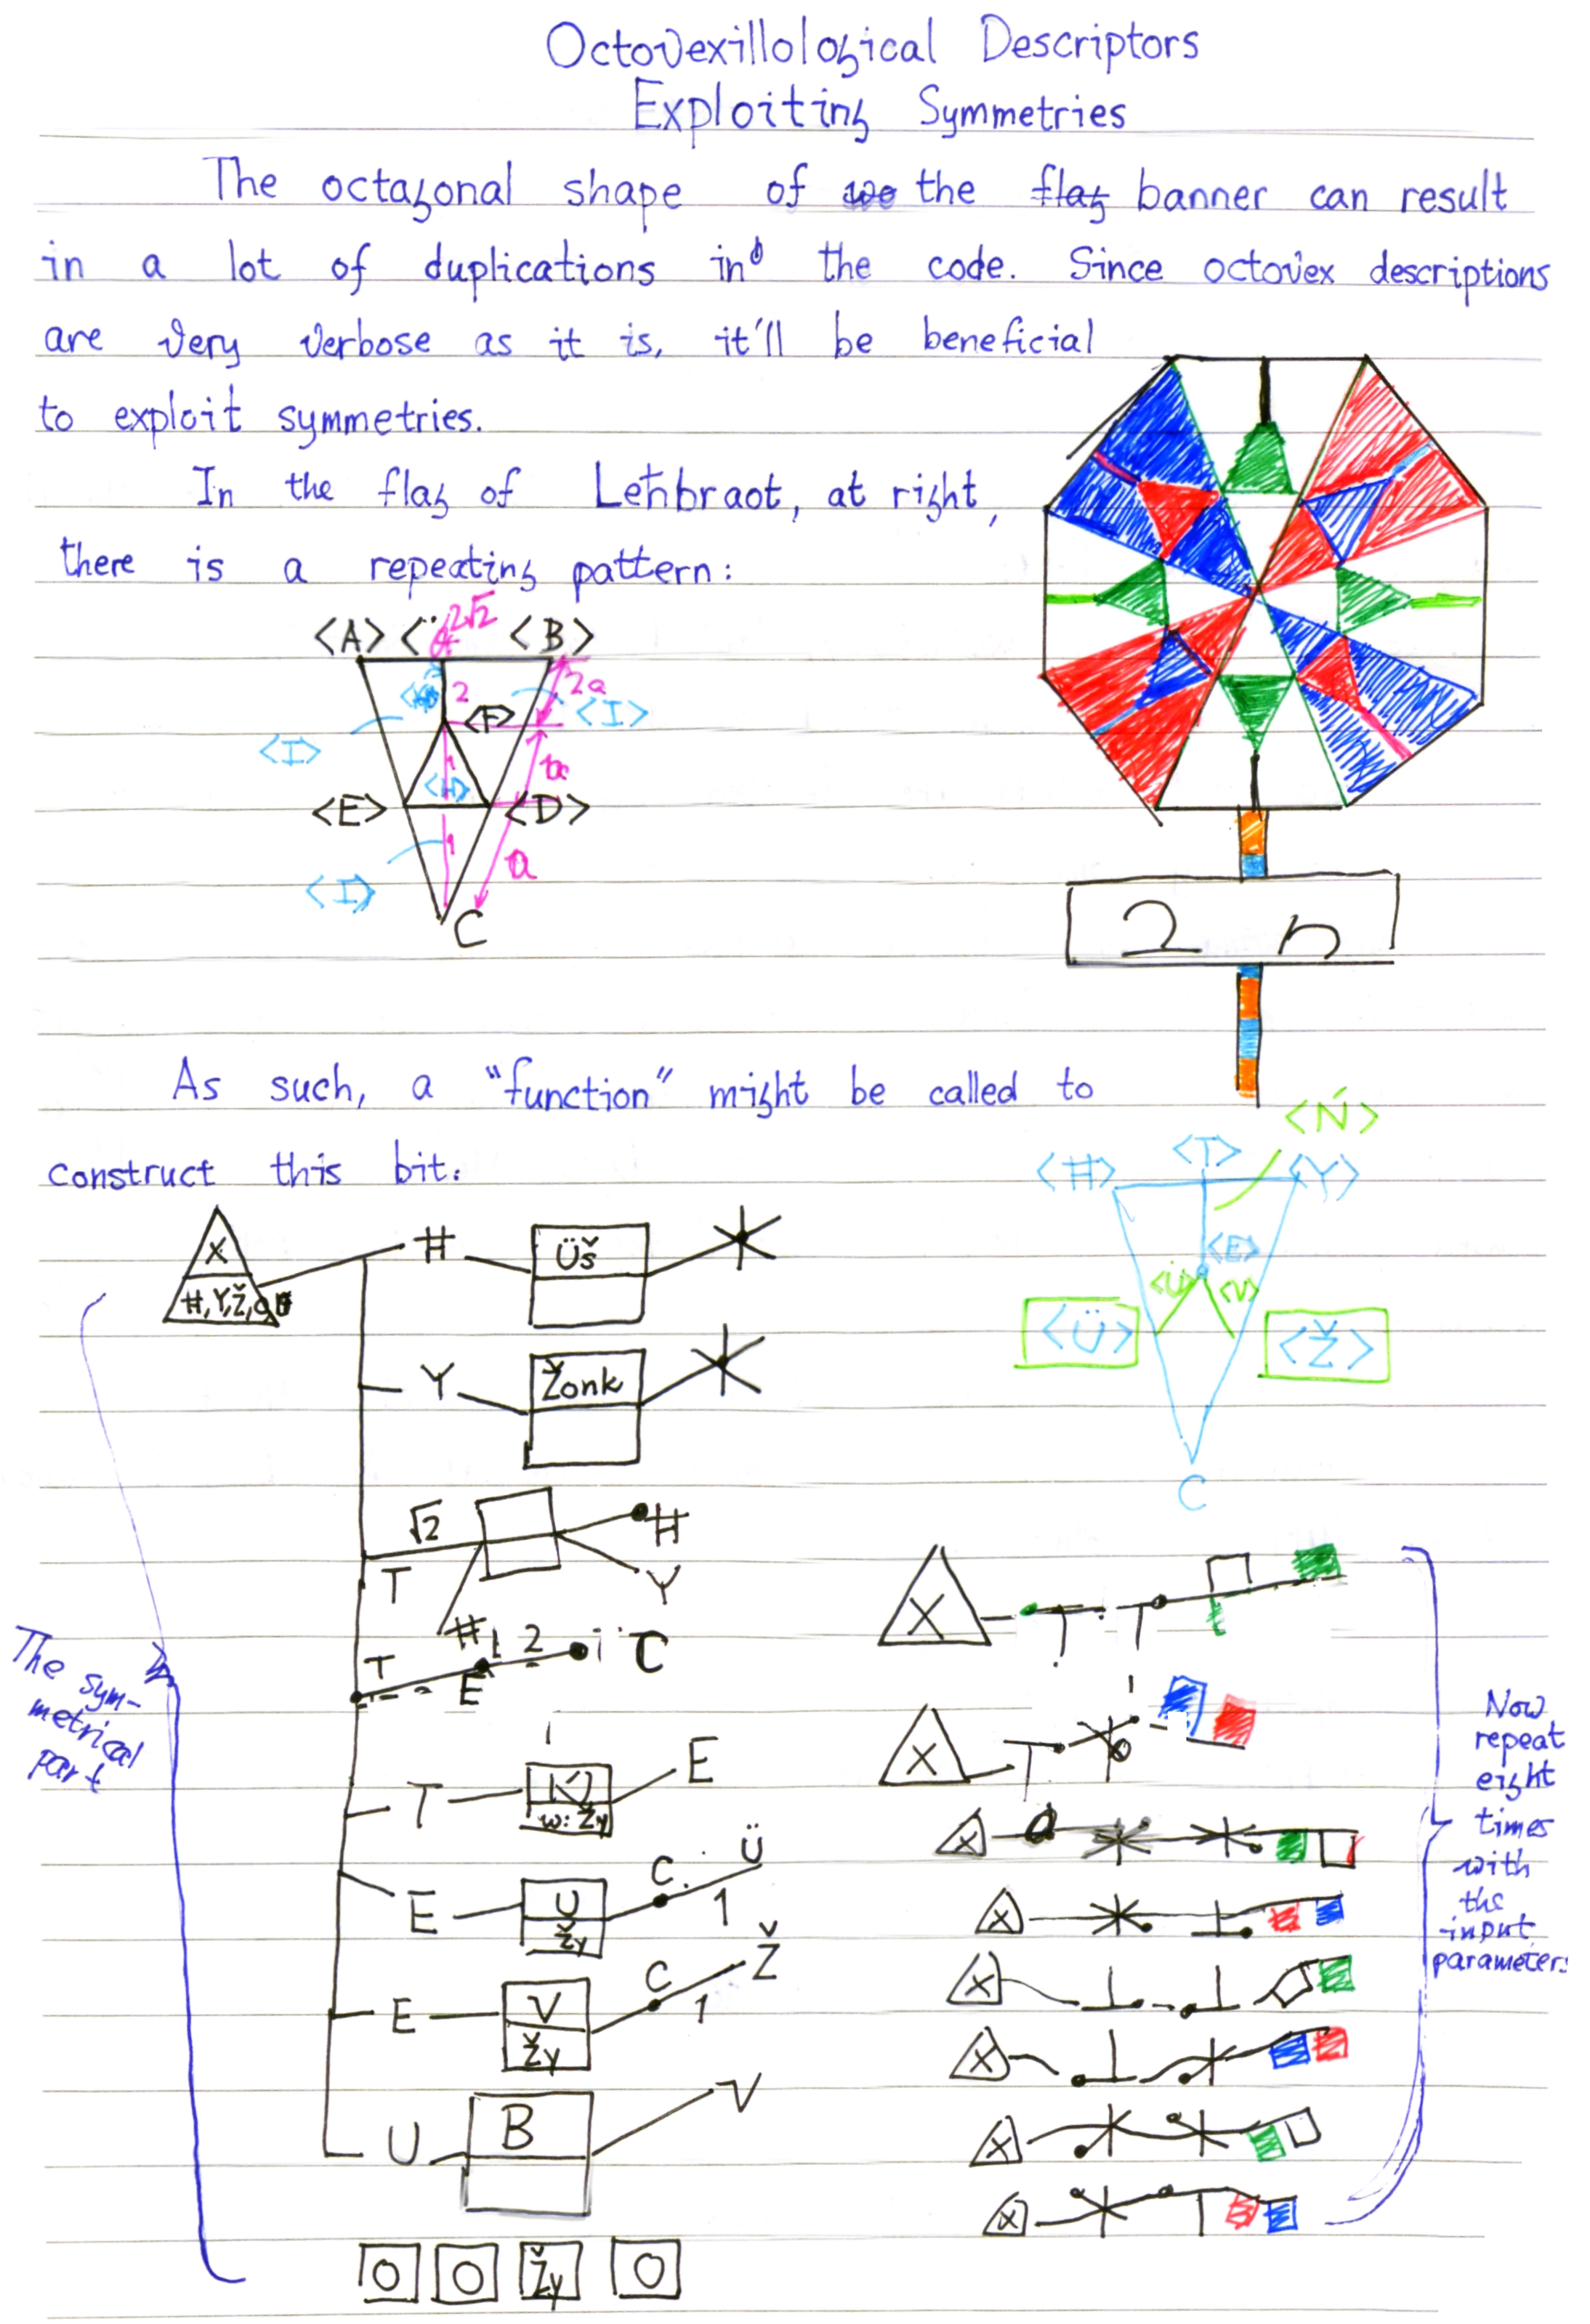 Octovexillological Descriptors
Exploiting Symmetries
The octagonal shape of the flag banner can result
in a lot of duplications in the code. Since octovex descriptions
are very verbose as it is, it'll be beneficial
to exploit symmetries.
In the flag of Leħbraot, at right,
there is a repeating pattern:
2√2
<A> <B>
2 2a
<F> <I>
<I>
1
<H>
<E> <D>
1 a
<I>
C
2 n
As such, a "function" might be called to
construct this bit:
<Ń>
<H> <T> <Y>
<E>
<U> <V>
<Ü> <Ž>
C
X
H, Y, Ž,
H Üš
Y Žonk
√2 H
T Y
H
T 1 2 C
E
T K E
w: Žy
E U C Ü
Žy 1
E V C Ž
Žy 1
U B V
O O Žy O
The sym-
metrical
part
X
X
X
X
X
X
X
X
Now
repeat
eight
times
with
the
input
parameter: